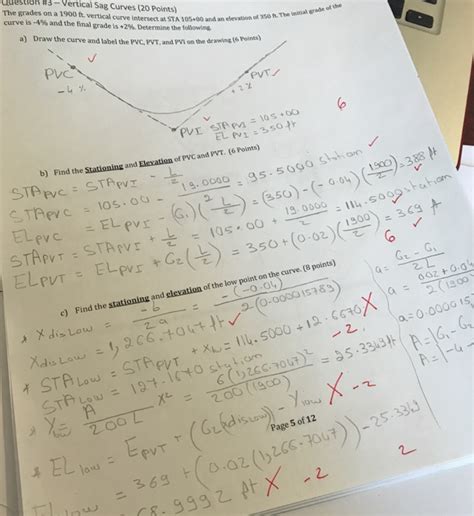 Question #3 – Vertical Sag Curves (20 Points)
The grades on a 1900 ft. vertical curve intersect at STA 105+00 and an elevation of 350 ft. The initial grade of the
curve is -4% and the final grade is +2%. Determine the following.
a) Draw the curve and label the PVC, PVT, and PVI on the drawing (6 Points)
PVC
-4 %
PVT
+2 %
PVI STA PVI = 105+00
EL PVI = 350 ft
6
b) Find the Stationing and Elevation of PVC and PVT. (6 Points)
STA PVC = STA PVI - L/2
STA PVC = 105.00 - 19.0000/2 = 95.5000 station
EL PVC = EL PVI - (G1)(L/2) = (350) - (-0.04)(1900/2) = 388 ft
STA PVT = STA PVI + L/2 = 105.00 + 19.0000/2 = 114.5000 station
EL PVT = EL PVI + G2(L/2) = 350 + (0.02)(1900/2) = 369 ft
6
a = G2 - G1/2L
a = 0.02 + 0.04/2(1900
a = 0.000015
A = |G1 - G
A = |-4 -
c) Find the stationing and elevation of the low point on the curve. (8 points)
X dis Low = -b/2a = -(-0.04)/2(0.000015789)
X dis Low = 1,266.7047 ft
STA Low = STA PVT + XL = 114.5000 + 12.6670 X
STA Low = 127.1670 station
-2
Y Low = A/200L X² = 6(1,266.7047)²/200(1900) = 25.3349 ft
X -2
EL low = E PVT + (G2(X dis Low)) - Y low
Page 5 of 12
= 369 + (0.02(1,266.7047)) - 25.3349
EL low = 68.9992 ft X -2
2